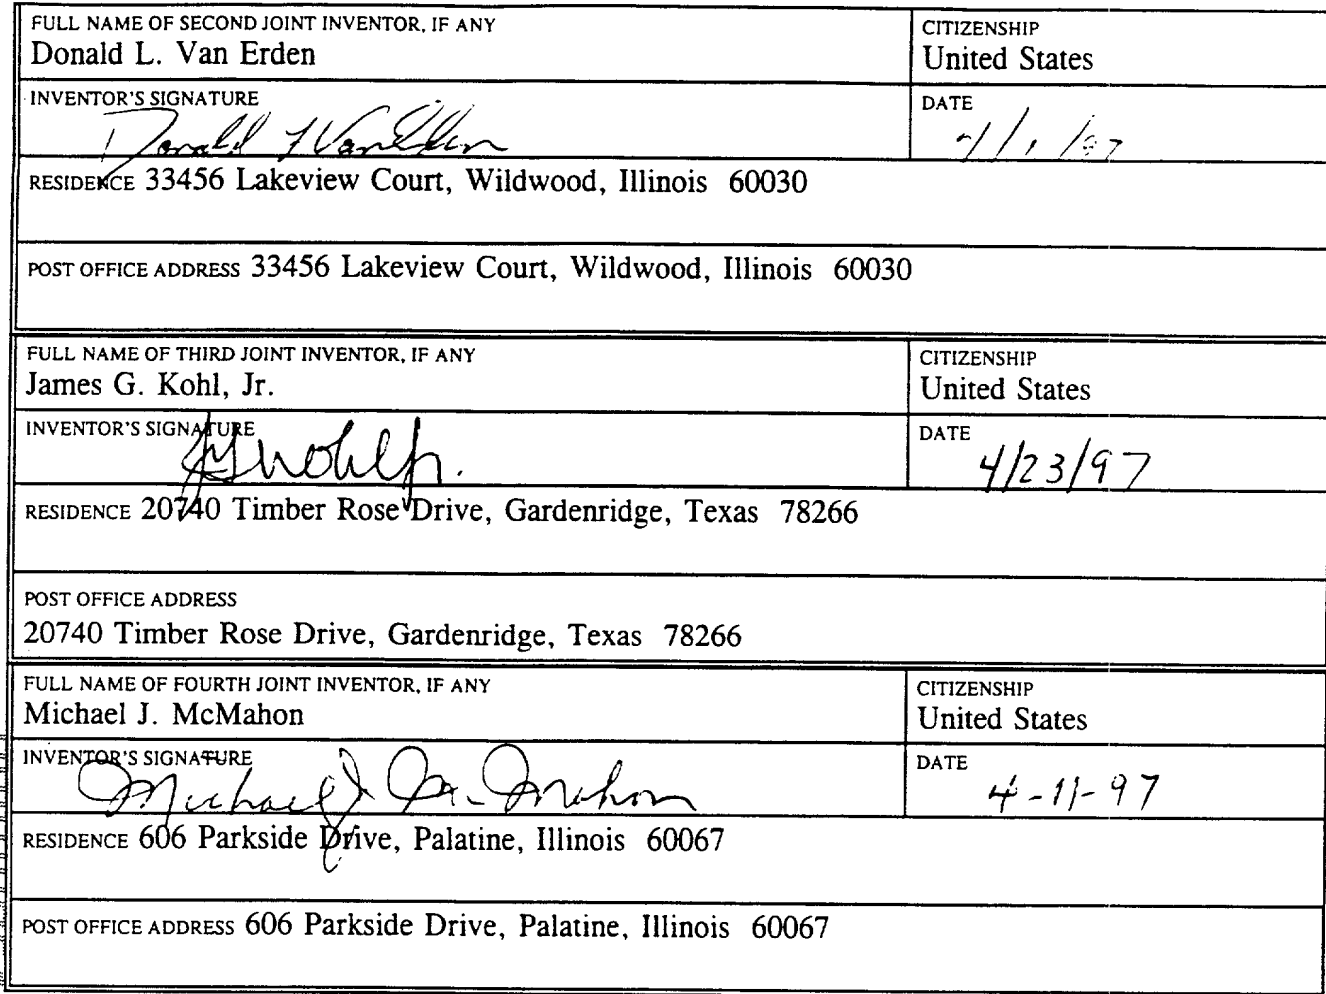 FULL NAME OF SECOND JOINT INVENTOR, IF ANY
Donald L. Van Erden
CITIZENSHIP
United States
INVENTOR'S SIGNATURE
Donald L VanErden
DATE
RESIDENCE 33456 Lakeview Court, Wildwood, Illinois 60030
POST OFFICE ADDRESS 33456 Lakeview Court, Wildwood, Illinois 60030
FULL NAME OF THIRD JOINT INVENTOR, IF ANY
James G. Kohl, Jr.
CITIZENSHIP
United States
INVENTOR'S SIGNATURE
JGKohl Jr.
DATE
4/23/97
RESIDENCE 20740 Timber Rose Drive, Gardenridge, Texas 78266
POST OFFICE ADDRESS
20740 Timber Rose Drive, Gardenridge, Texas 78266
FULL NAME OF FOURTH JOINT INVENTOR, IF ANY
Michael J. McMahon
CITIZENSHIP
United States
INVENTOR'S SIGNATURE
Michael J. McMahon
DATE
4-11-97
RESIDENCE 606 Parkside Drive, Palatine, Illinois 60067
POST OFFICE ADDRESS 606 Parkside Drive, Palatine, Illinois 60067